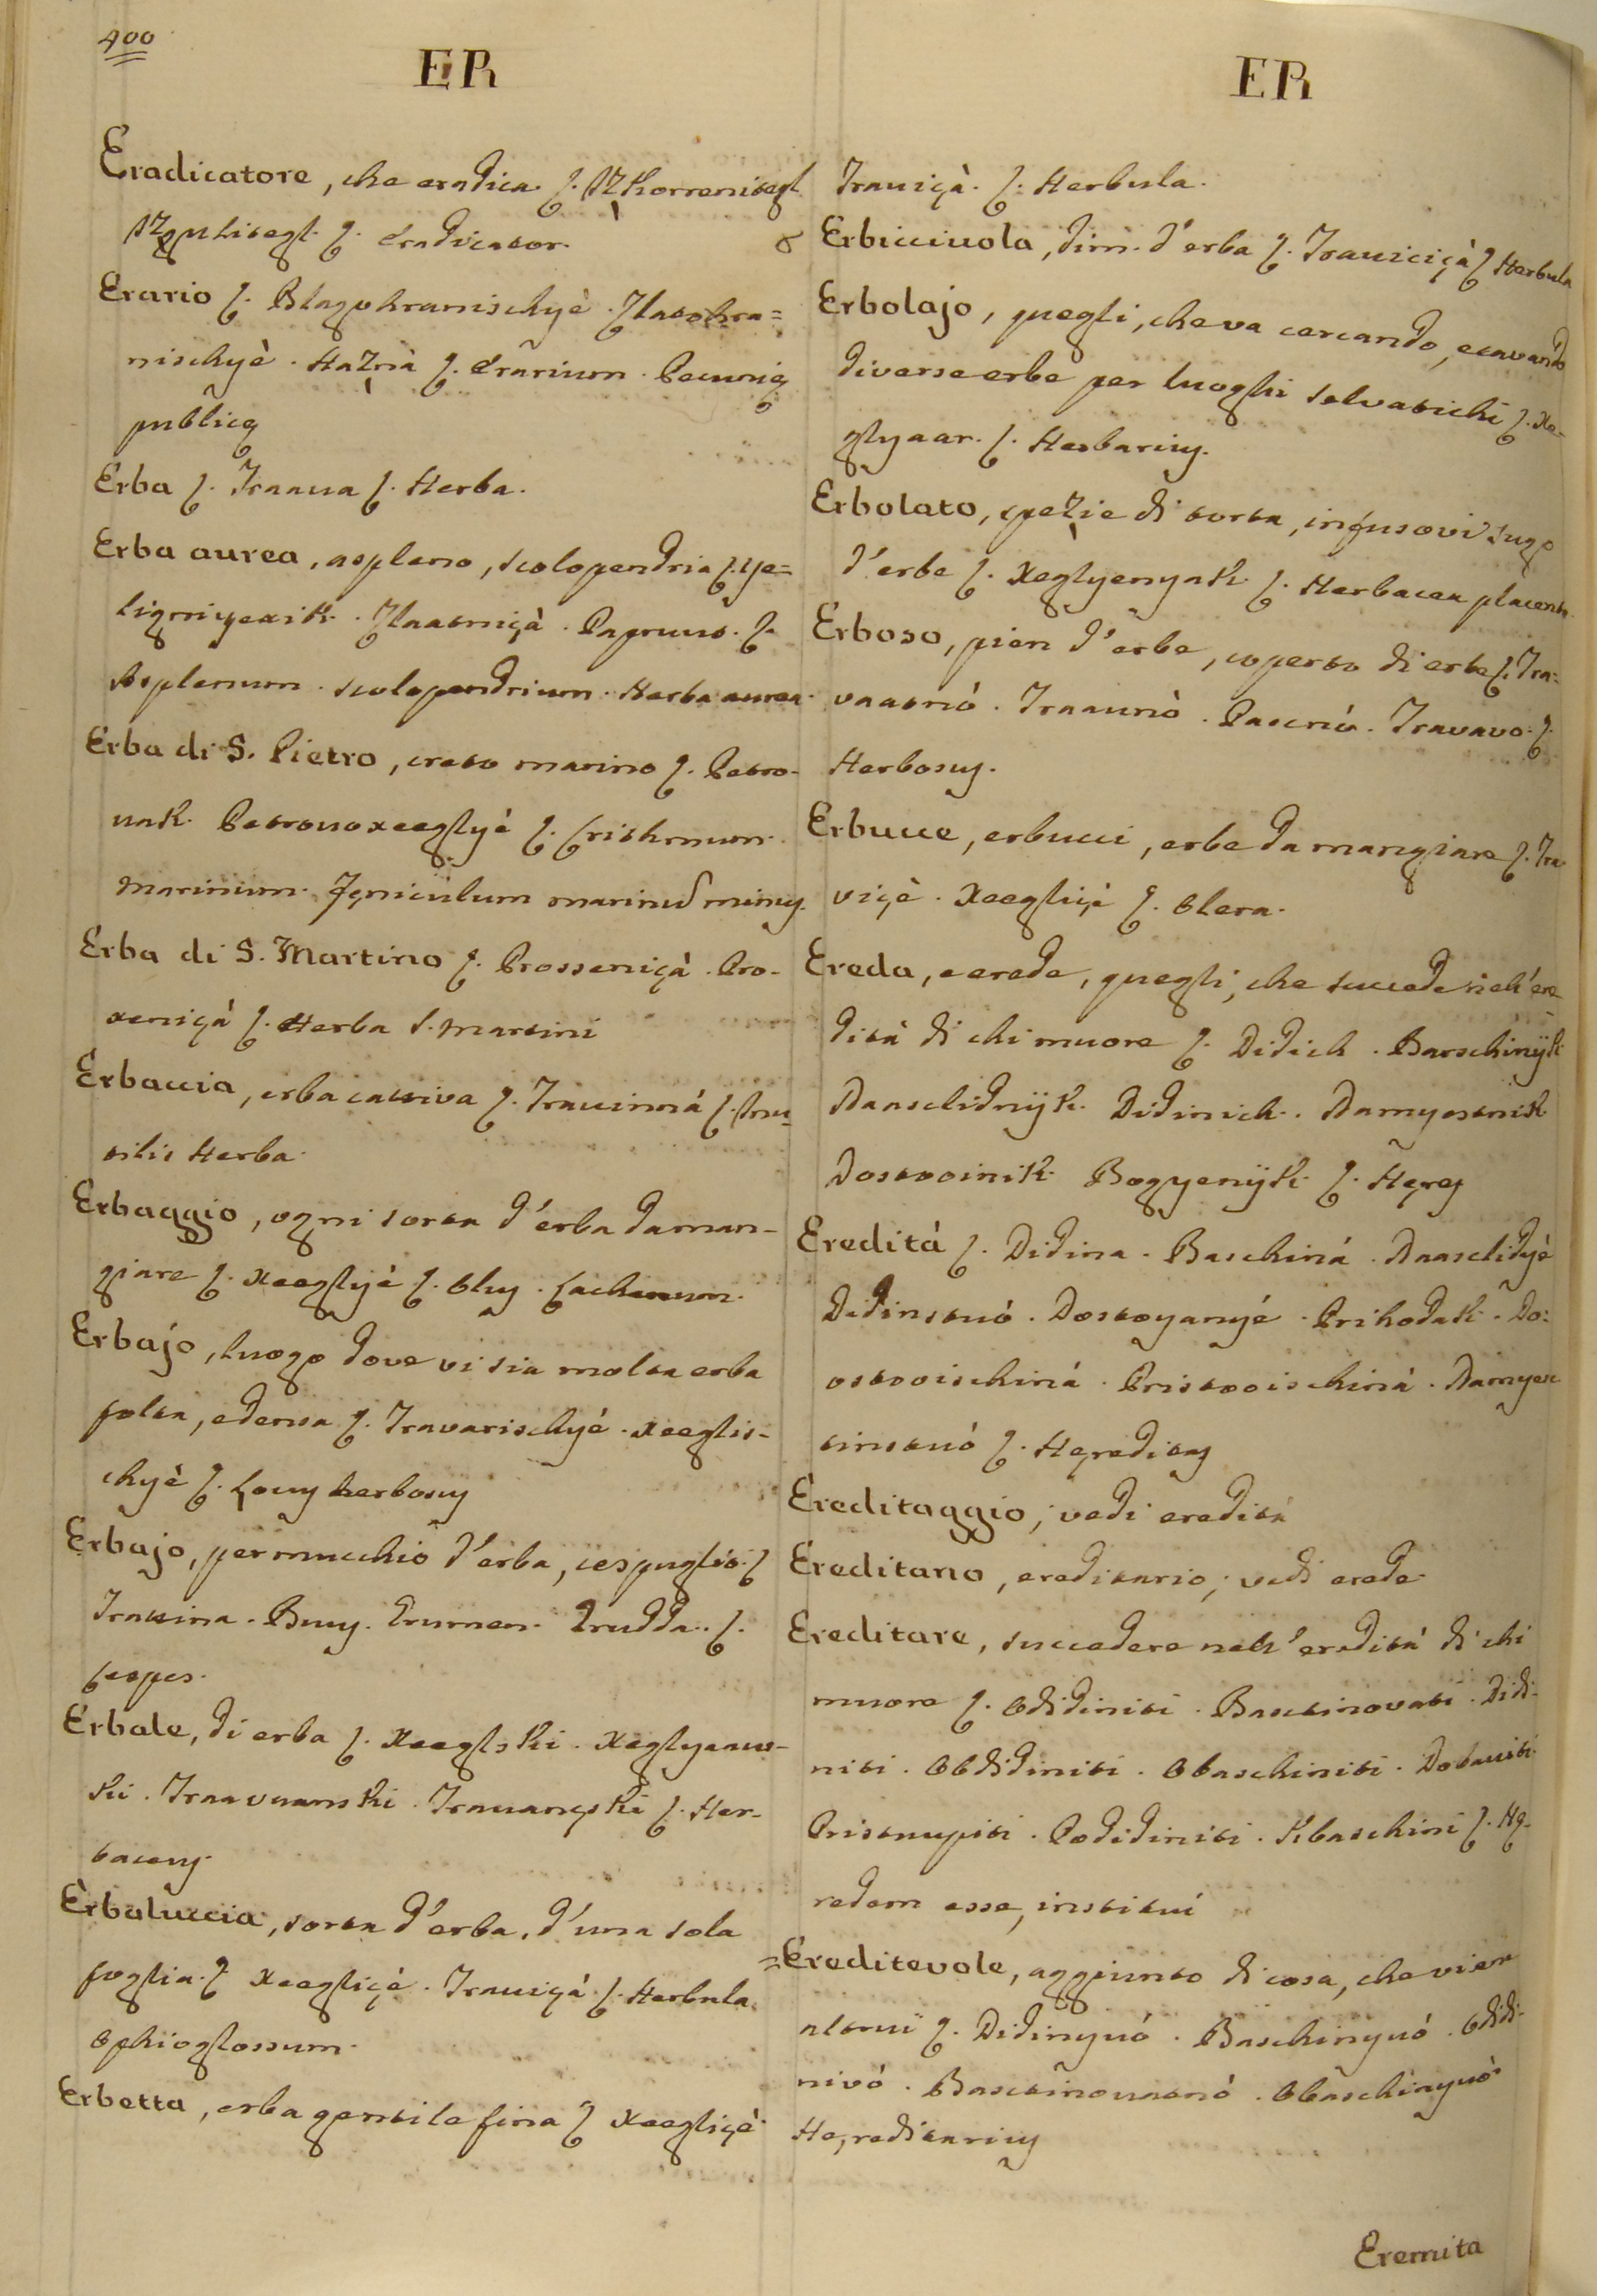 400
ER
Eradicatore, che eradica. ſ. Izkorrenitegl.
Izgulitegl. ſ. Eradicator.
Erario ſ. Blagohranischyè. Zlatohra=
nischyè. Haznà ſ. Erarium. Pecunię
publicę
Erba ſ. Traava ſ. Herba.
Erba aurea, aspleno, scolopendria ſ. Ye=
ligniyezik. Zlaatniçà. Paprut. ſ.
Asplenum. scolopendrium. Herba aurea.
Erba di S. Pietro, creto marino ſ. Petro-
vak. Petrovoxeeglyé ſ. Crithmum.
marinum. Fęniculum marinũ minꝯ.
Erba di S. Martino ſ. Prosseniçà. Pro-
xeniçá ſ. Herba S. Martini
Erbaccia, erba cattiva ſ. Travinná ſ. Inu-
tilis Herba.
Erbaggio, ogni sorta d'erba da man-
giare ſ. Xeeglyé ſ. Olꝯ. Lachanum.
Erbajo, luogo dove vi sia molta erba
folta, e densa ſ. Travarischyé. Xeeglis-
chyè ſ. Locꝯ herbosꝯ
Erbajo, per mucchio d'erba, cespuglio. ſ.
Trattina. Buꝯ. Grumen. Grudda. ſ.
Cespes.
Erbale, di erba ſ. Xeeglski. Xeglyeans-
ki. Traavanski. Travançski ſ. Her-
baceꝯ.
Erbaluccia, sorta d'erba, d'una sola
foglia. ſ. Xeegliçè. Traviçá. ſ. Herbula.
Ophioglossum.
Erbetta, erba gentile fina ſ. Xeegliçè.
ER
Traviçà. ſ. Herbula.
Erbicciuola, dim. d'erba ſ. Traviciçà ſ. Herbula
Erbolajo, quegli, che va cercando, e cavando
diverse erbe per luoghi salvatichi ſ. Xe-
glyaar. ſ. Herbariꝯ.
Erbolato, spezie di torta, infusovi sugo
d'erbe ſ. Xeglyenyak. ſ. Herbacea placenta.
Erboso, pien d'erbe, coperto di erbe ſ. Tra=
vaatnó. Traavnò. Pascnó. Travavo. ſ.
Herbosꝯ.
Erbucce, erbucci, erbe da mangiare ſ. Tra-
viçè. Xeegliçé ſ. Olera.
Ereda, e erede, quegli, che succede nell'ere
ditá di chi muore ſ. Didich. Barschinÿk
Naasclidnÿk. Didinich. Namyestnik
Dostooinik. Bogyenÿk ſ. Hęres
Ereditá ſ. Didina. Baschiná. Naasclidyé
Didinstvó. Dostoyanyé. Prihodak. Do=
ostooischiná. Pristooischiná. Namyes
tinstvó ſ. Hęreditas
Ereditaggio; vedi ereditá
Ereditano, ereditario; vedi erede.
Ereditare, succedere nell'ereditá di chi
muore ſ. Odidiniti. Basctinovati. Didi-
niti. Obdidiniti. Obaschiniti. Dobaviti.
Pristupiti. Podidiniti. Kbaschini ſ. Hę-
redem esse, institui
Ereditevole, aggiunto di cosa, che vien
altrui ſ. Didinyvó. Baschinyvó. Odidi-
nivó. Basctinovatnó. Obaschinyvó
Hęreditariꝯ
Eremita